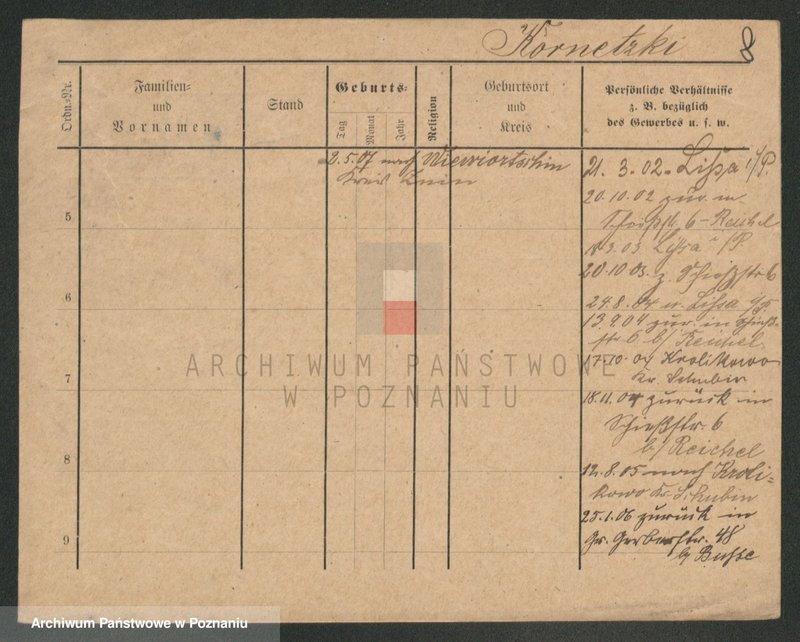 Kornetzki 8
Ordn.-Nr.
Familien-
und
Vornamen
Stand
Geburts-
Tag
Monat
Jahr
Religion
Geburtsort
und
Kreis
Persönliche Verhältnisse
z. B. bezüglich
des Gewerbes u. s. w.
2.5.07 nach
Kreis Znin
5
6
7
8
9
21.3.02. Lissa i/P.
20.10.02 zur. in
Schießstr. 6 - Reichel
3.03 Lissa i/P
20.10.03. z. Schießstr 6
24.8.04 n. Lissa i/P
13.9.04 zur. in Schieß-
str. 6 b/ Reichel
17.10.04 Krolikowo
Kr. Schubin
18.11.04 zurück in
Schießstr. 6
b/ Reichel
12.8.05 nach Kroli-
kowo Kr. Schubin
25.1.06 zurück in
Gr. Gerberstr. 48
b/
ARCHIWUM PAŃSTWOWE
W POZNANIU
Archiwum Państwowe w Poznaniu